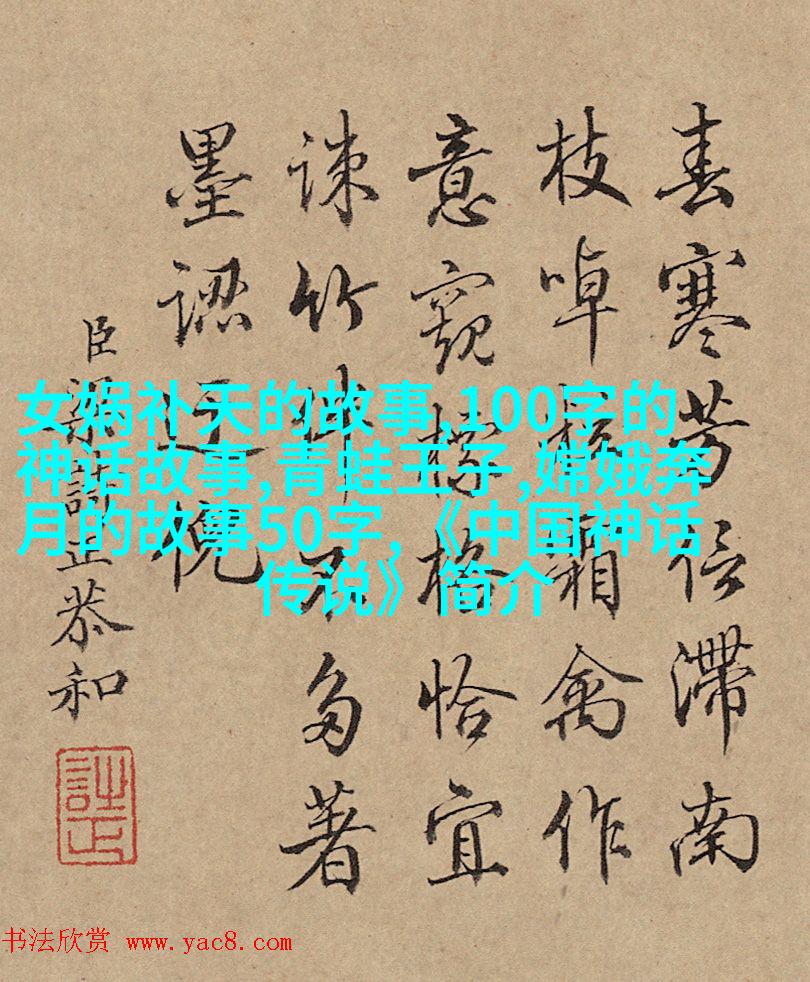 春寒芳信滯南
枝啅霜禽作
意窺標格恰宜
疎竹不多著
墨
臣梁詩正恭和
詩正
女娲补天的故事,100字的
神话故事,青蛙王子,嫦娥奔
月的故事50字,《中国神话
传说》简介
书法欣赏 www.yac8.com